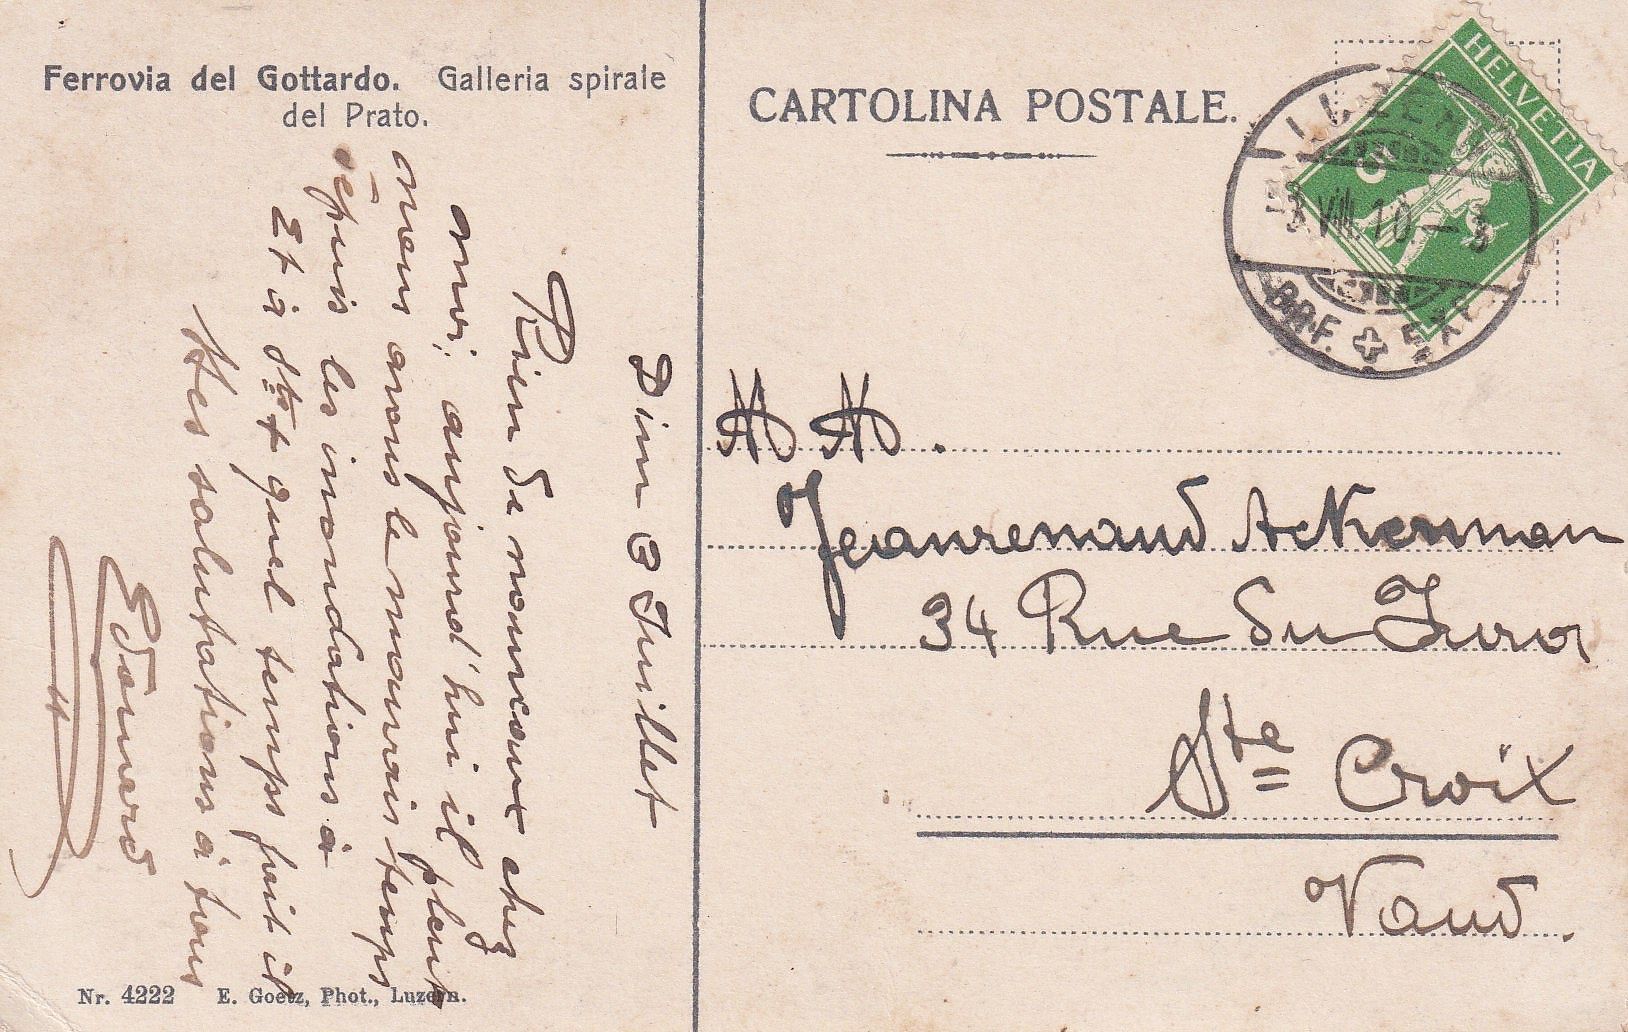 Ferrovia del Gottardo. Galleria spirale
del Prato.
CARTOLINA POSTALE.
HELVETIA
5
LUZERN
-3.VII.10.-3
BRF. EXP.
Dim 3 Juillet
Rien de nouveaux chez
moi, aujourd'hui il pleut
nous avons le mauvais temps
depuis les inondations à
Et à Ste + quel temps fait il
Mes salutations à tous
Edouard
M M.
Jeanrenaud Ackerman
34 Rue du Jura
Ste Croix
Vaud.
Nr. 4222 E. Goetz, Phot., Luzern.